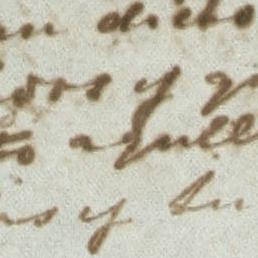 en dicto
dos y q
to aquell
is y su